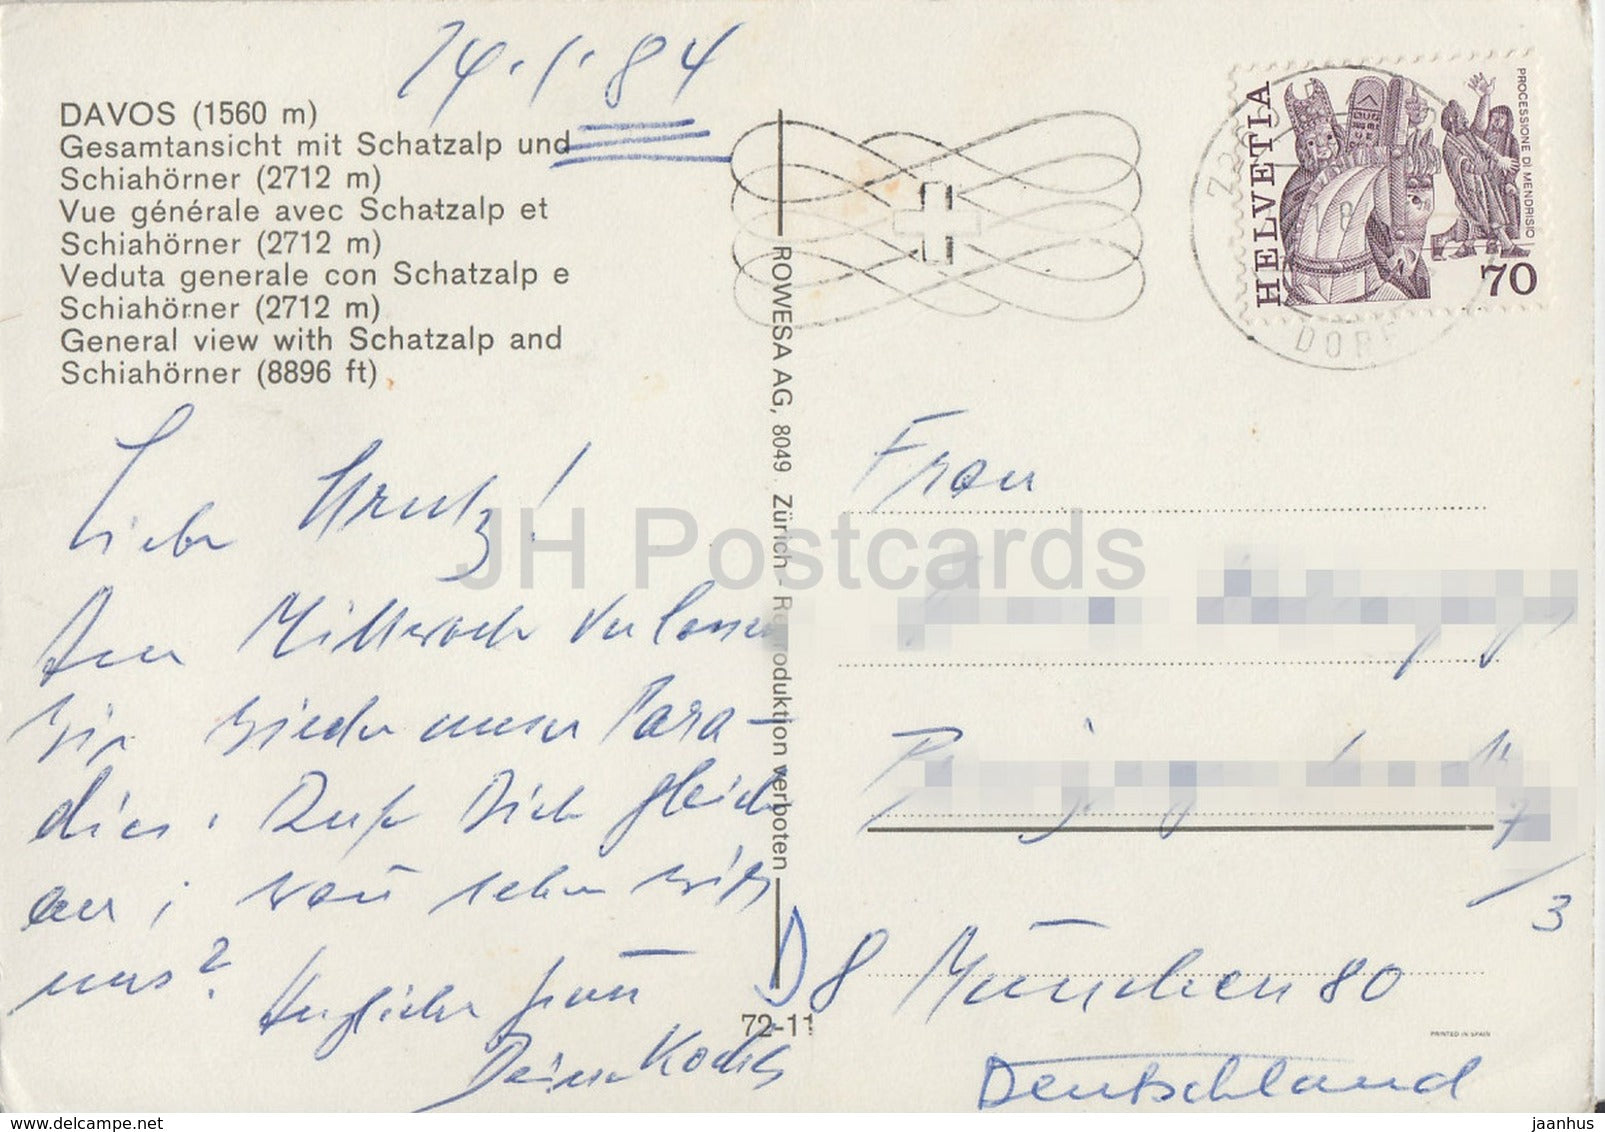 14.1.84
DAVOS (1560 m)
Gesamtansicht mit Schatzalp und
Schiahörner (2712 m)
Vue générale avec Schatzalp et
Schiahörner (2712 m)
Veduta generale con Schatzalp e
Schiahörner (2712 m)
General view with Schatzalp and
Schiahörner (8896 ft)
Liebe
Am Mittwoch verlassen
wir wieder unser Para-
dies. Rufe Dich gleich
an; wann sehen wir
uns?
Herzliche Grüße
Deine
ROWESA AG, 8049 Zürich - Reproduktion verboten
72-11
HELVETIA
PROCESSIONE DI MENDRISIO
70
DORF
Frau
/3
D 8 München 80
Deutschland
PRINTED IN SPAIN
JH Postcards
www.delcampe.net
jaanhus